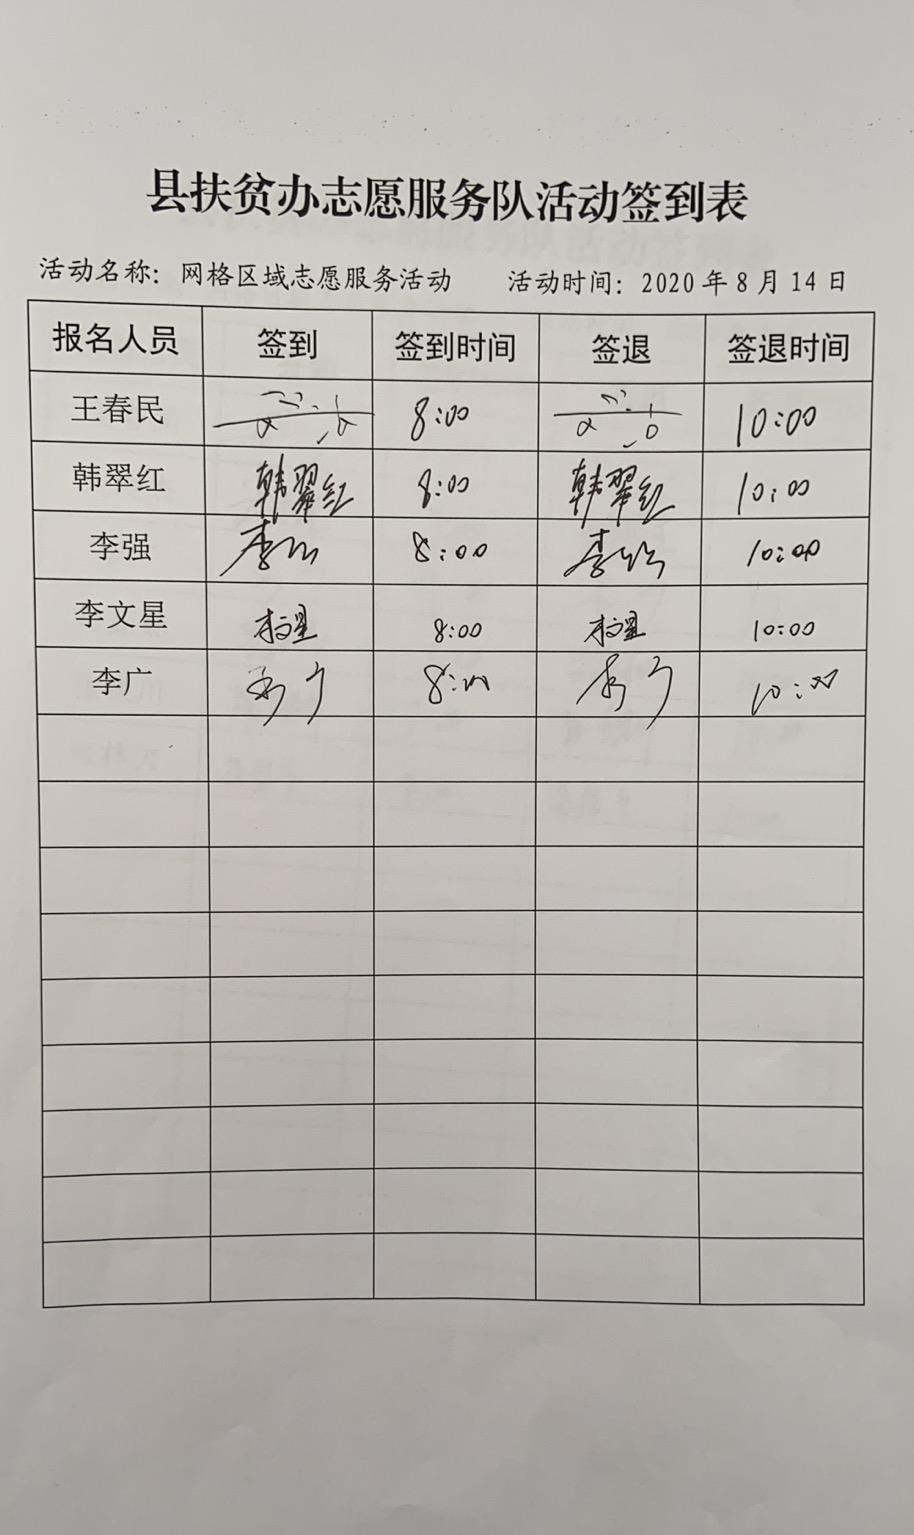 县扶贫办志愿服务队活动签到表
活动名称：网格区域志愿服务活动 活动时间：2020年8月14日
报名人员 签到 签到时间 签退 签退时间
王春民 8:00 10:00
韩翠红 韩翠红 8:00 韩翠红 10:00
李强 李强 8:00 李强 10:00
李文星 李文星 8:00 李文星 10:00
李广 李广 8:00 李广 10:00